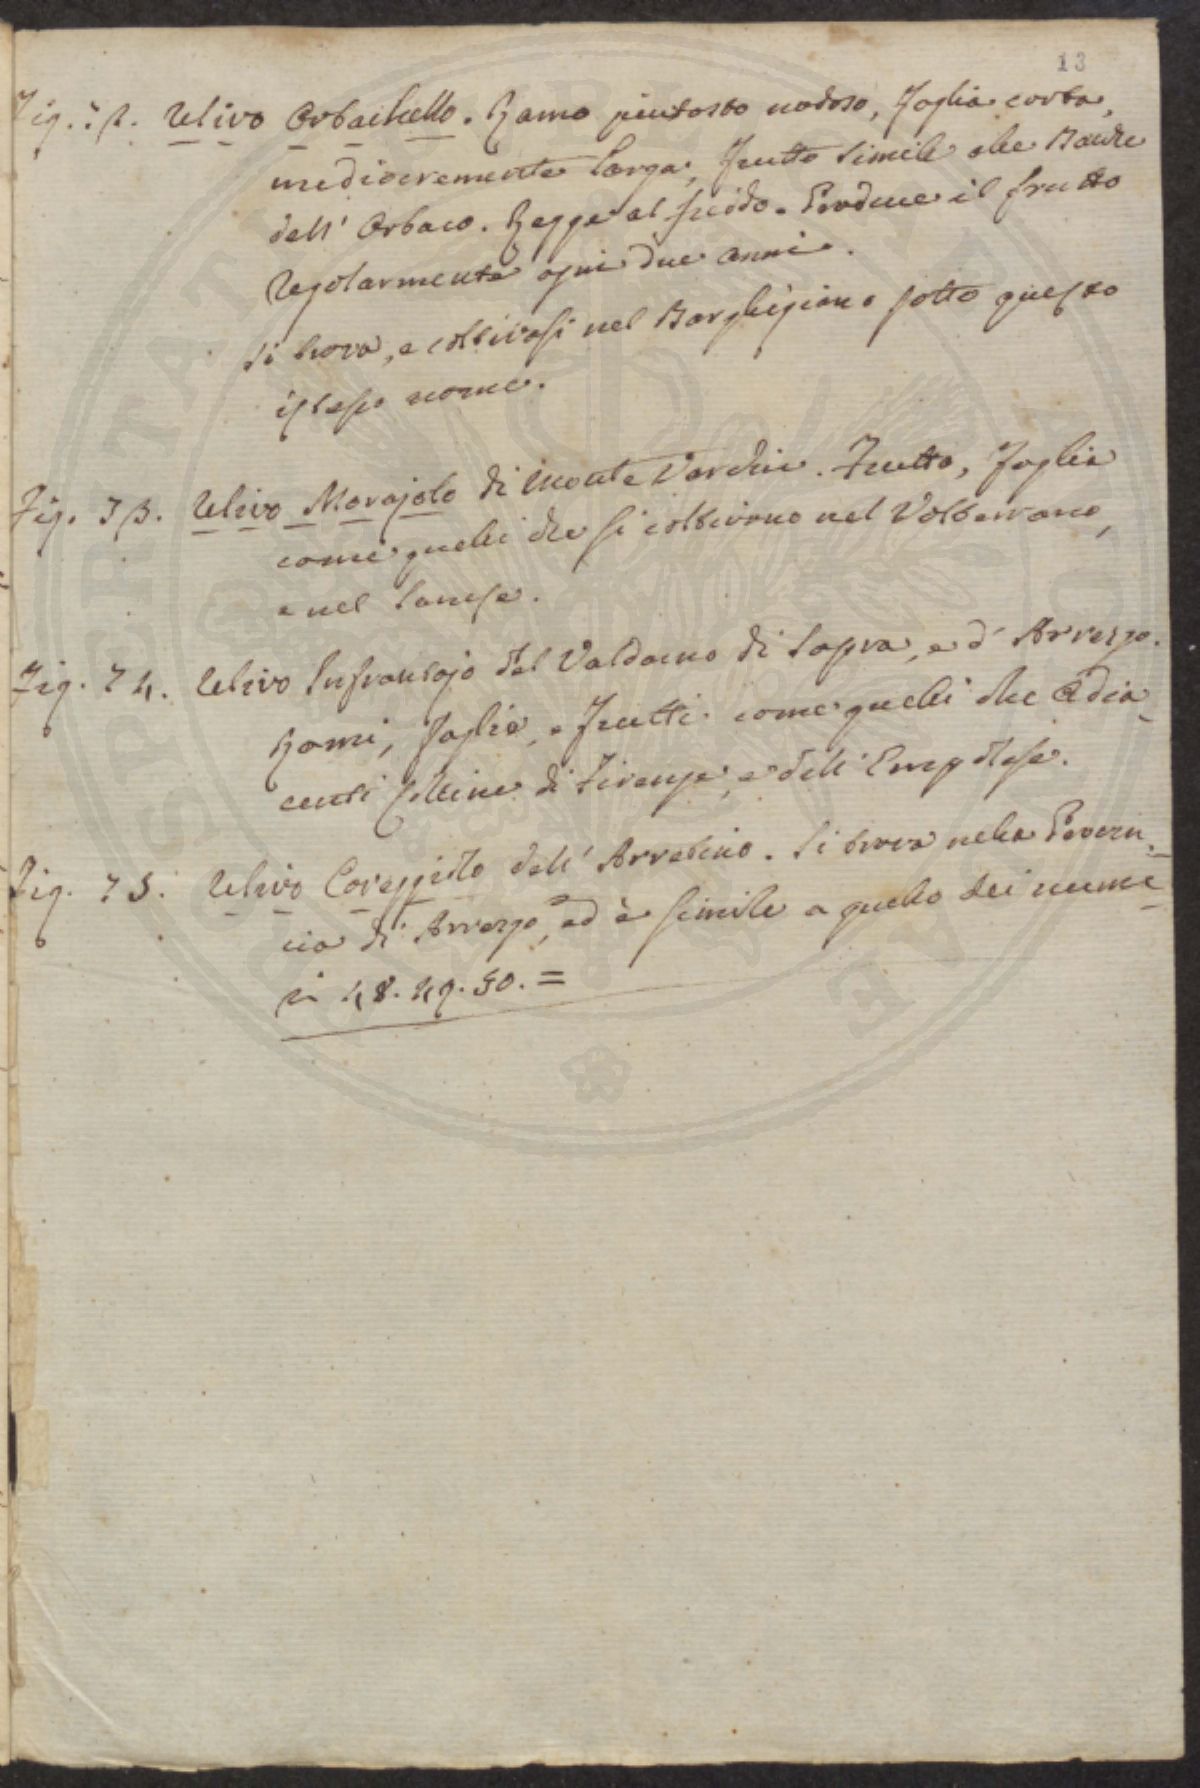 13
Fig. 72. Ulivo Orbachello. Ramo piutosto nodoso, Foglia corta,
mediocremente larga, Frutto simile alle Bache
dell' Orbaco. Regge al freddo. Produce il frutto
regolarmente ogni due anni.
Si trova, e coltivasi nel Barghigiano sotto questo
istesso nome.
Fig. 73. Ulivo Morajolo di Monte Varchie. Frutto, Foglia
come quelli che si coltivono nel Volterrano,
e nel Sanese.
Fig. 74. Ulivo Infrantojo del Valdarno di Sopra, e d' Arrezzo.
Rami, Foglie, e Frutti come quelli che Adia-
centi Colline di Firenze, e dell' Empolese.
Fig. 75. Ulivo Coreggiolo dell' Arretino. Si trova nella Provin-
cia di Arrezzo, ed è simile a quello dei nume-
ri 48. 49. 50. =